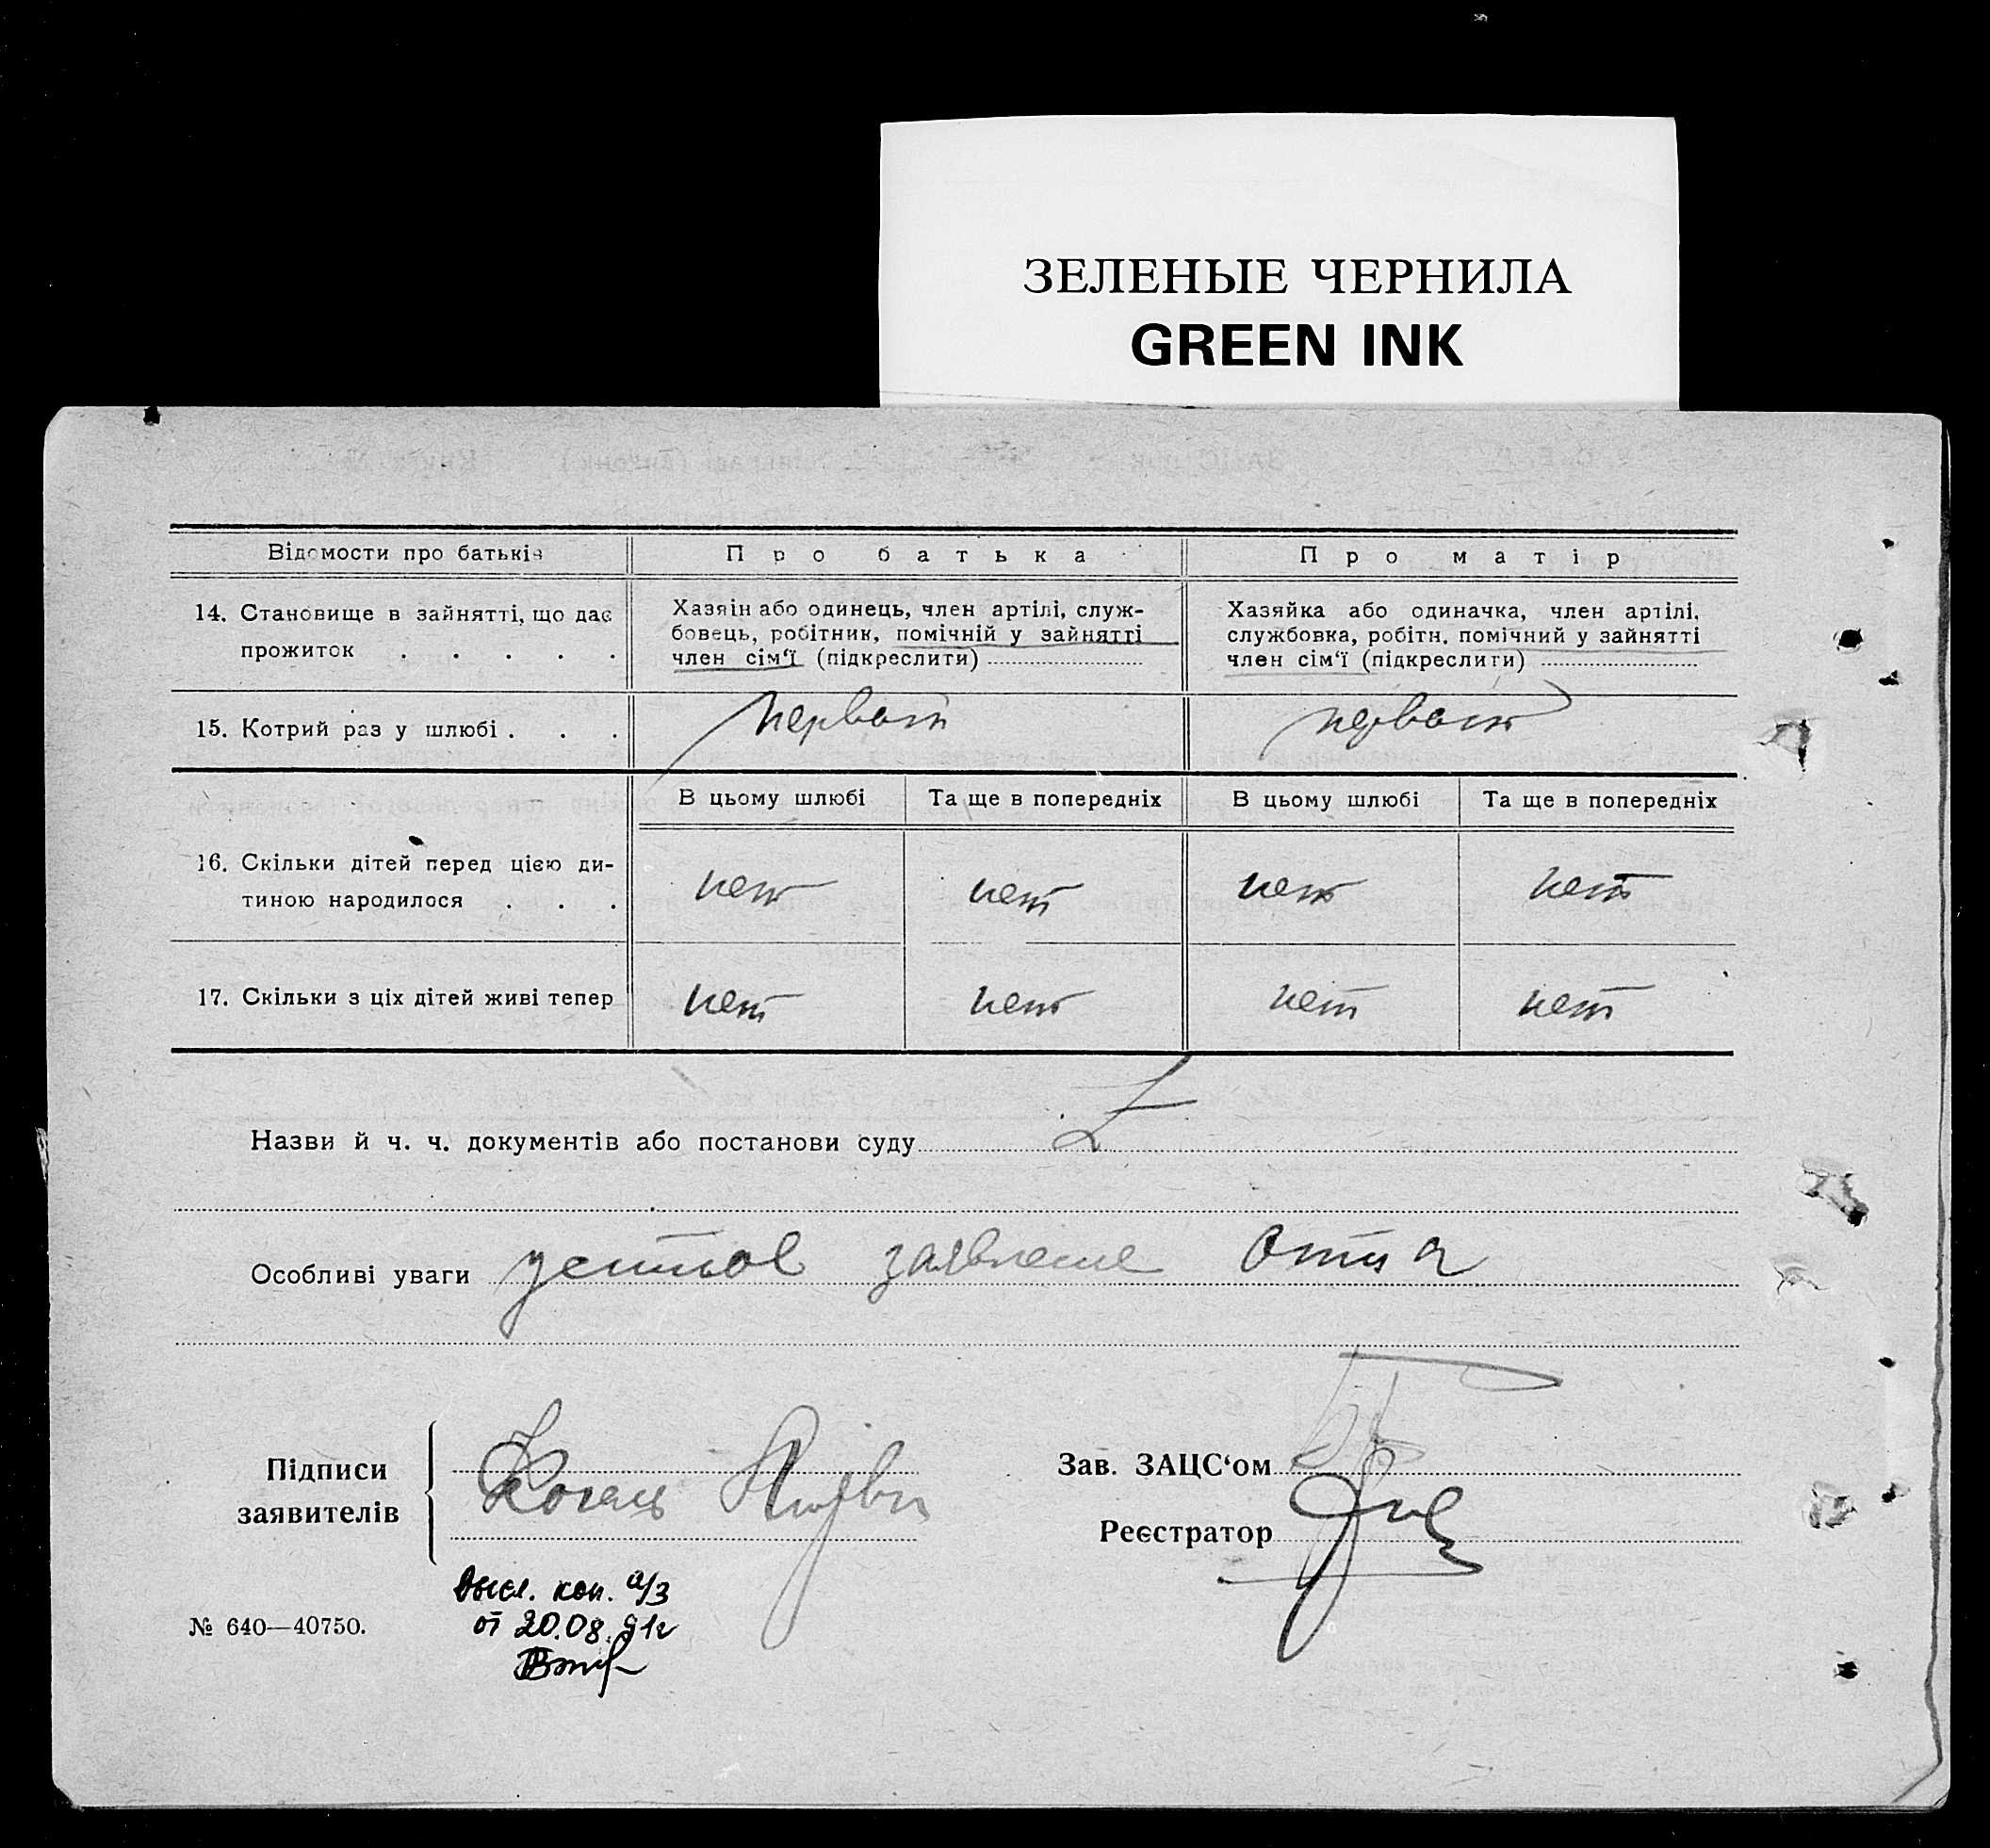 ЗЕЛЕНЫЕ ЧЕРНИЛА
GREEN INK
Відомости про батьків
Про батька
Про матір
14. Становище в зайнятті, що дає
прожиток . . . . .
Хазяін або одинець, член артілі, служ-
бовець, робітник, помічній у зайнятті
член сім‘ї (підкреслити)
Хазяйка або одиначка, член артілі,
службовка, робітн. помічний у зайнятті
член сім‘ї (підкреслити)
15. Котрий раз у шлюбі . . .
первый
первый
В цьому шлюбі
Та ще в попередніх
В цьому шлюбі
Та ще в попередніх
16. Скільки дітей перед цією ди-
тиною народилося . . .
нет
нет
нет
нет
17. Скільки з ціх дітей живі тепер
нет
нет
нет
нет
Назви й ч. ч. документів або постанови суду
Особливі уваги устное заявление отца
Підписи
заявителів
Зав. ЗАЦС‘ом
Реєстратор
высл. коп. а/з
от 20.08.91г
№ 640—40750.